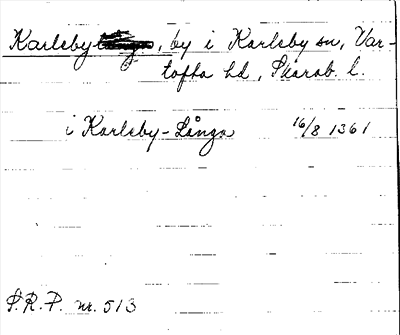 Karlsby, by i Karlsby sn, Var-
tofta hd, Skarab. l.
i Karlsby-Långa 16/8 1361
S.R.P. nr. 513